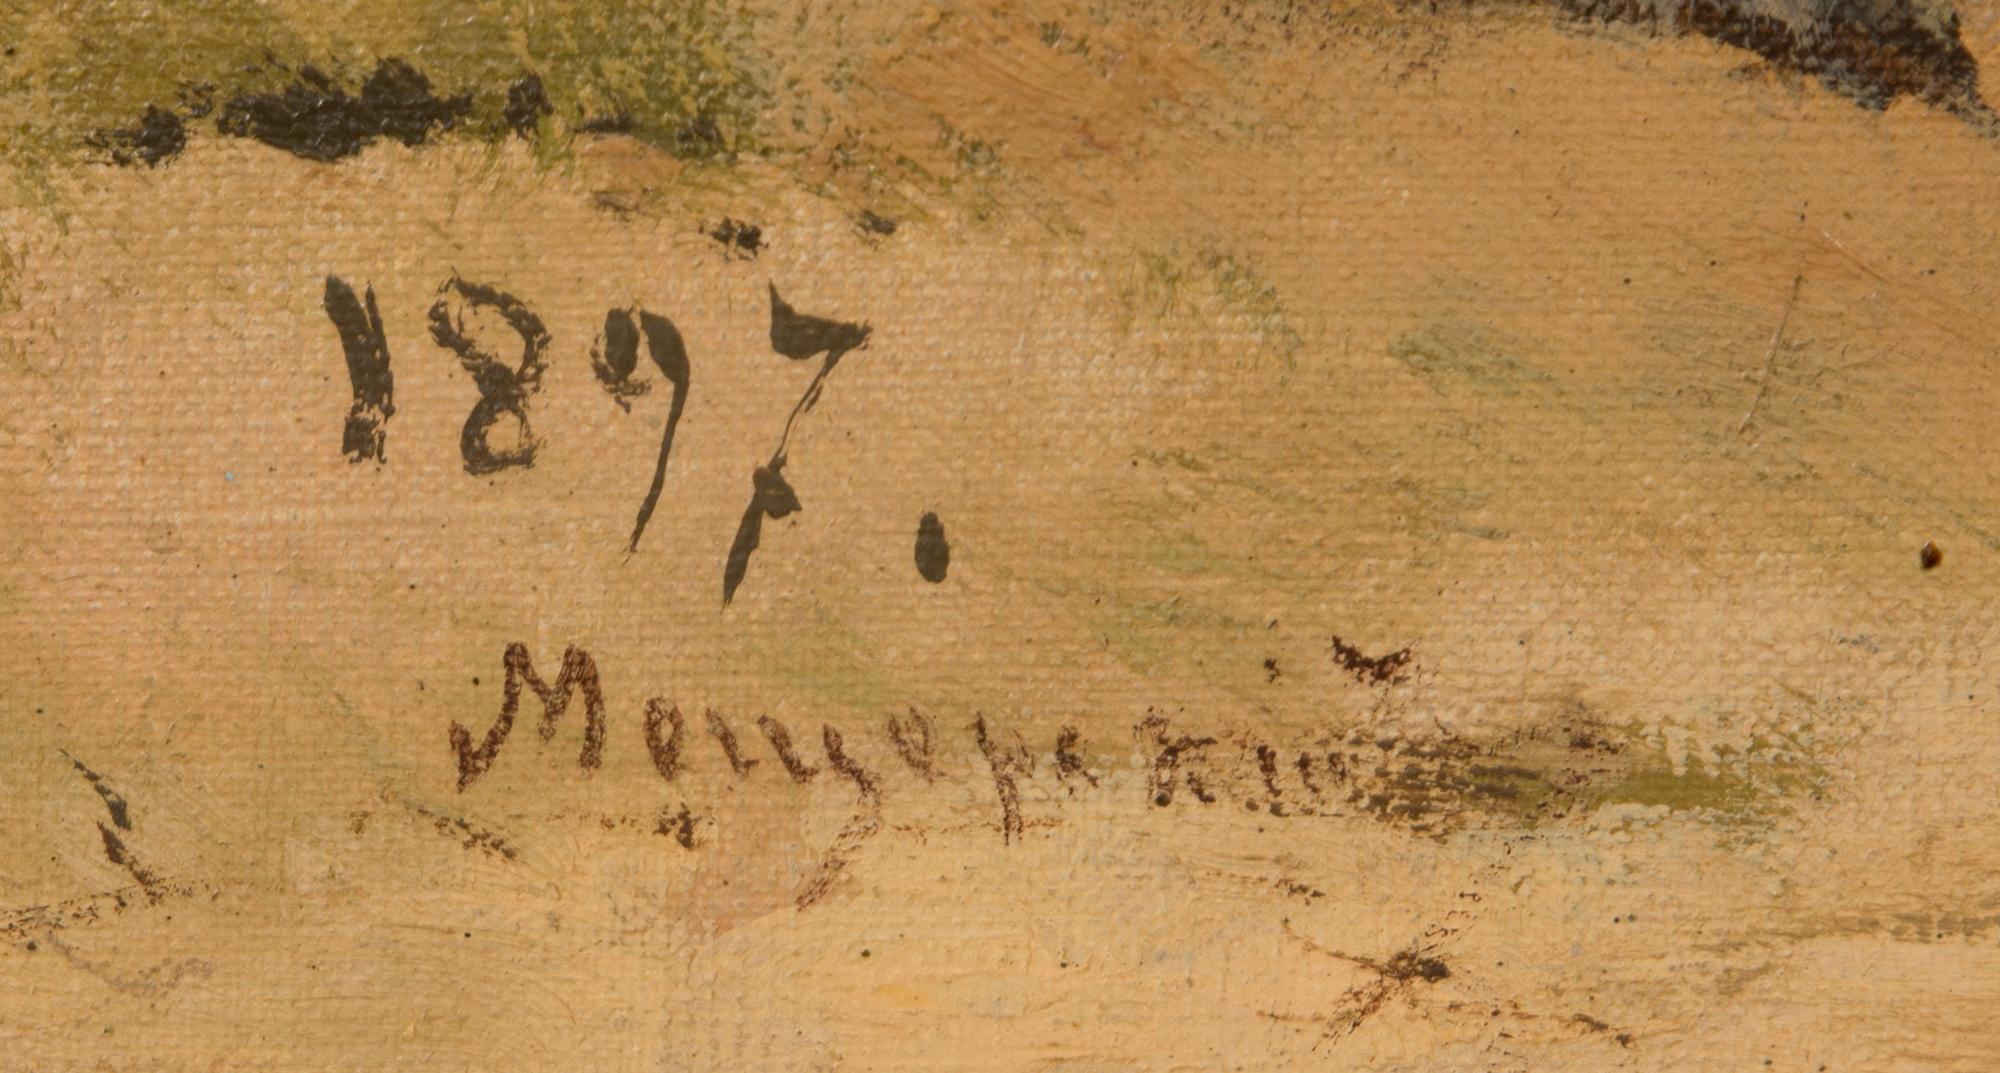 1897.
Мещерскій